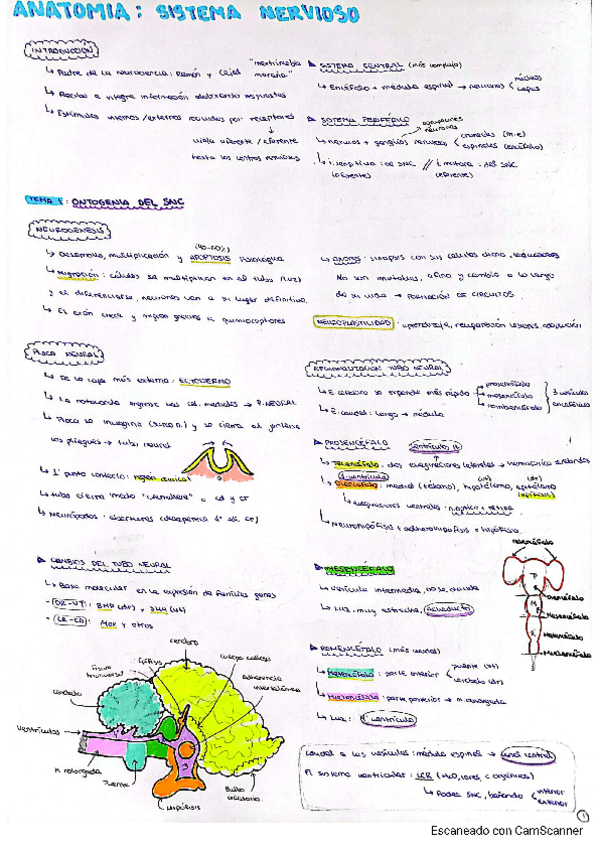 ANATOMIA: SISTEMA NERVIOSO
INTRODUCCIÓN
↳ Padre de la neurociencia: Ramón y Cajal "maraña"
↳ Recibe e integra información elaborando respuestas
↳ Estímulos internos/externos recibidos por receptores
↓
viaja aferente/eferente
hasta los centros nerviosos
▶ SISTEMA CENTRAL (más complejo)
↳ Encéfalo + médula espinal → neuronas
núcleos
capas
▶ SISTEMA PERIFÉRICO
agrupaciones neuronas
↳ nervios + ganglios nerviosos
craneales
espinales
↳ i. sensitiva: al SNC // i. motora: del SNC
(aferente) (eferente)
TEMA 1: ONTOGENIA DEL SNC
NEUROGÉNESIS
↳ Desarrollo, multiplicación y APOPTOSIS fisiológica
↳ MIGRACIÓN: células se multiplican en el tubo (luz)
y al diferenciarse, neuronas van a su lugar definitivo.
↳ El axón crece y migra gracias a quimiorreceptores
↳ sinapsis con sus células diana,
No son inmutables, afina y cambia a lo largo
de su vida → FORMACIÓN DE CIRCUITOS.
NEUROPLASTICIDAD: aprendizaje, recuperación lesiones, evolución
PLACA NEURAL
↳ De la capa más externa: ECTODERMO
↳ La notocorda → P. NEURAL
↳ Placa se invagina y se cierra al juntarse
los pliegues → tubo neural
↳ 1º punto contacto: región cervical
↳ tubo cierra "modo cremallera" a cd y cr
↳ Neuróporos: aberturas
REGIONALIZACIÓN TUBO NEURAL
↳ E. cefálico se expande más rápido
prosencéfalo
mesencéfalo
rombencéfalo
3 vesículas encefálicas
↳ E. caudal: largo → médula
▶ PROSENCÉFALO
ventrículos
↳ Telencéfalo: dos evaginaciones laterales → hemisferios cerebrales
3º ventrículo
↳ Diencéfalo: medial (tálamo), hipotálamo, epitálamo
↳ evaginaciones ventrales: n. óptico + retina
↳ Neurohipófisis + adenohipófisis = hipófisis.
▶ CAMBIOS DEL TUBO NEURAL
↳ Base molecular en la expresión de familias genes
BMP
y otros
▶ MESENCÉFALO
↳ Vesícula intermedia, no se divide
↳ Luz: muy estrecha, acueducto
▶ ROMBENCÉFALO (más caudal)
↳ Metencéfalo: parte anterior
puente
cerebelo
↳ Mielencéfalo: parte posterior → m. alargada
↳ Luz: 4º ventrículo
Telencéfalo
Diencéfalo
Mesencéfalo
Metencéfalo
Mielencéfalo
cerebro
Epífisis
Cuerpo calloso
Fisura transversal
Adherencia intertalámica
cerebelo
Ventrículos
M. alargada
Puente
Hipófisis
Bulbo olfatorio
Caudal a las vesículas: médula espinal → canal central
El sistema ventricular: LCR (H₂O, iones, c. orgánicos)
↳ Rodea SNC, bañando
interior
exterior
1
Escaneado con CamScanner